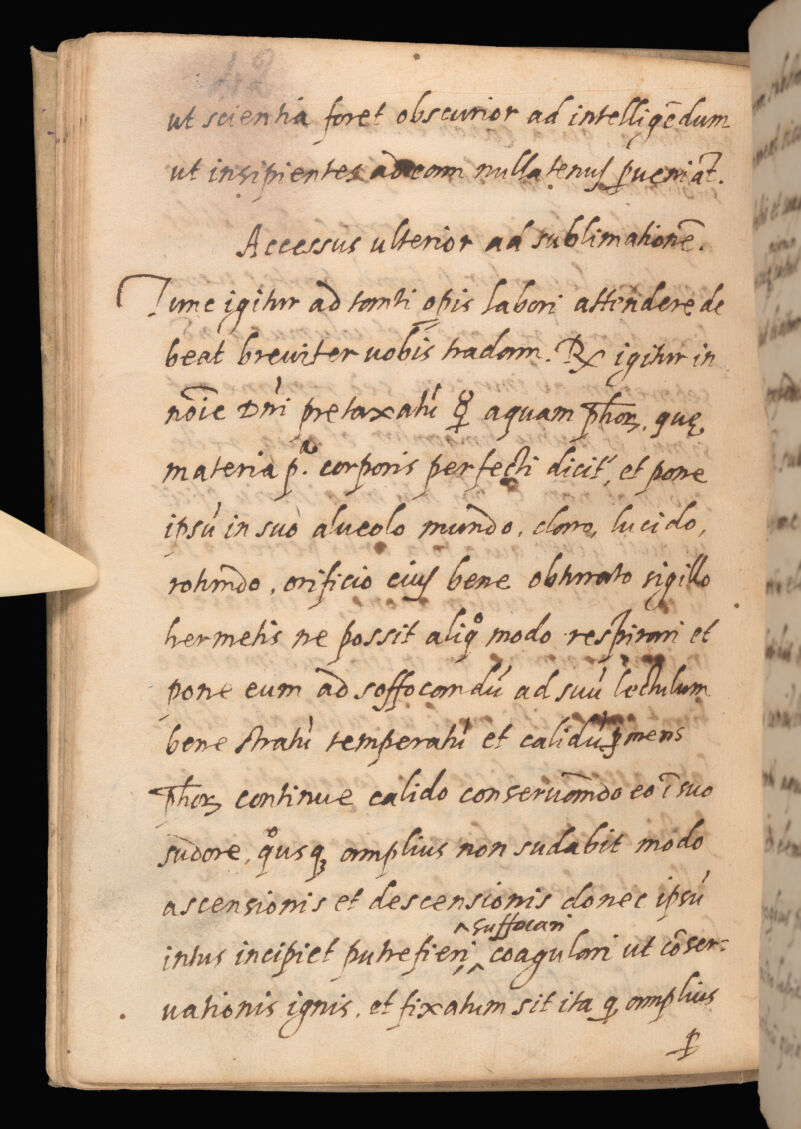 42
ut scientia foret obscurior ad intelligēdum
ut insipientes ad eam nullatenus ꝑueniāt.
Accessus ulterior ad sublimationē.
Tunc igitur ad tanti opis labori attendere de
beat breviter uobis tradam. ℞ igitur in
nōie Dn̄i pretaxatū ☿ aquam ph̄oꝝ, quę
materia pᵃ. corporis perfecti dicit̄, et pone
ipsū in suo alueolo mundo, claro, lucido,
rotundo, orificio eius bene obturato sigillo
hermetis ne possit aliqͦ modo respirari et
pone eum ad soffocandū ad suū lectulum
bene stratū temperatū et calidū
ph̄oꝝ continue calido conseruando eo ī suo
sudore, qͦusqꝫ amplius non sudabit modo
ascensionis et descensionis donec ipsū
intus incipiet putrefieri, ^suffocari^ coagulari ut cōser=
uationis ignis, et fixatum sit ita ꝙ amplius